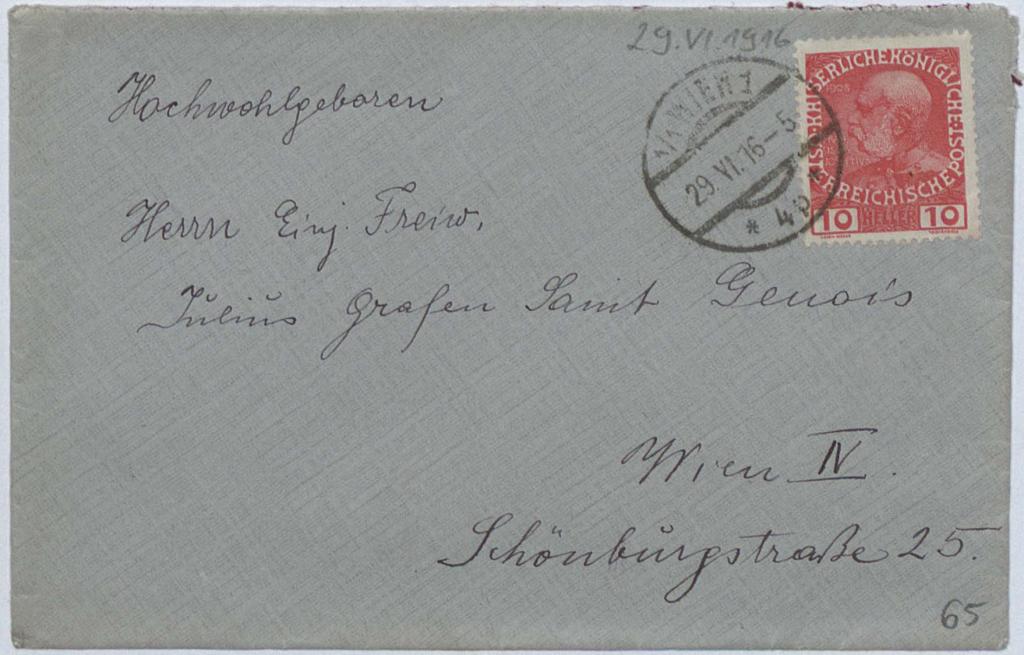 29.VI.1916
1/1 WIEN 1
29. VI. 16 – 5
* 4p *
KAISERLICHE KÖNIGLICHE ÖSTERREICHISCHE POST
1908
10 HELLER 10
Hochwohlgeboren
Herrn Einj. Freiw.
Julius Grafen Saint Genois
Wien IV.
Schönburgstraße 25.
65